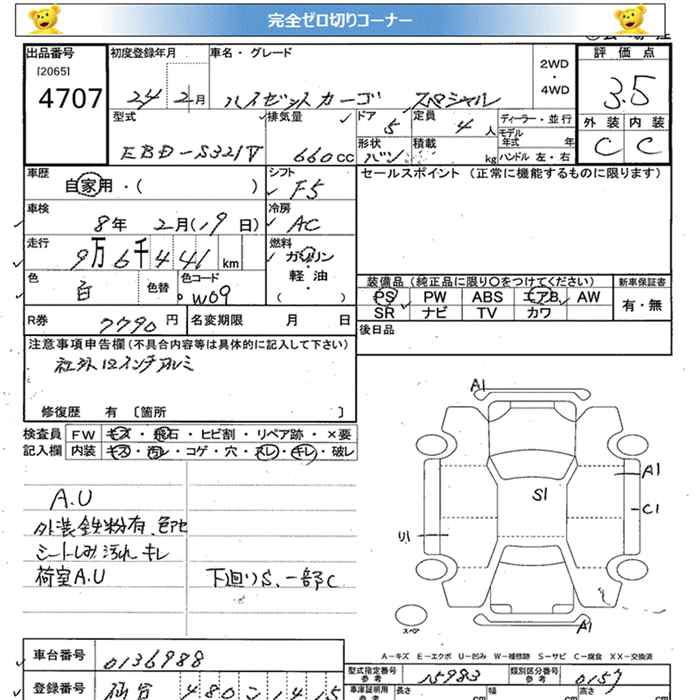 完全ゼロ切りコーナー
出品番号 初度登録年月 車名・グレード 評価点
[2065] 2WD・4WD
4707 24 2月 ハイゼットカーゴ スペシャル 3.5
型式 排気量 ドア 5 定員 4人 ディーラー・並行 外装 内装
EBD-S321V 660cc 形状 バン 積載 kg モデル年式 年 C C
ハンドル 左・右
車歴 自家用・( ) シフト F5 セールスポイント (正常に機能するものに限ります)
車検 8年 2月(19日) 冷房 AC
走行 9万6千441km 燃料 ガソリン
軽・油
( )
色 白 色替 色コード W09 装備品(純正品に限り○をつけてください) 新車保証書
PS PW ABS エアB AW 有・無
SR ナビ TV カワ
R券 7790円 名変期限 月 日 後日品
注意事項申告欄(不具合内容等は具体的に記入して下さい)
社外12インチアルミ
修復歴 有 〔箇所 〕
検査員 FW キズ・飛石・ヒビ割・リペア跡・×要
記入欄 内装 キズ・汚レ・コゲ・穴・スレ・キレ・破レ
A1
A1
S1
C1
A.U
外装鉄粉有、色ヤケ
U1
シートしみ汚れ キレ
荷室A.U 下廻りS、一部C
スペア
A1
A－キズ E－エクボ U－凹み W－補修跡 S－サビ C－腐食 XX－交換済
車台番号 0136988
型式指定番号 参考 15983 類別区分番号 参考 0157
登録番号 仙台 480 車庫証明用 参考 長さ cm 幅 cm 高さ cm